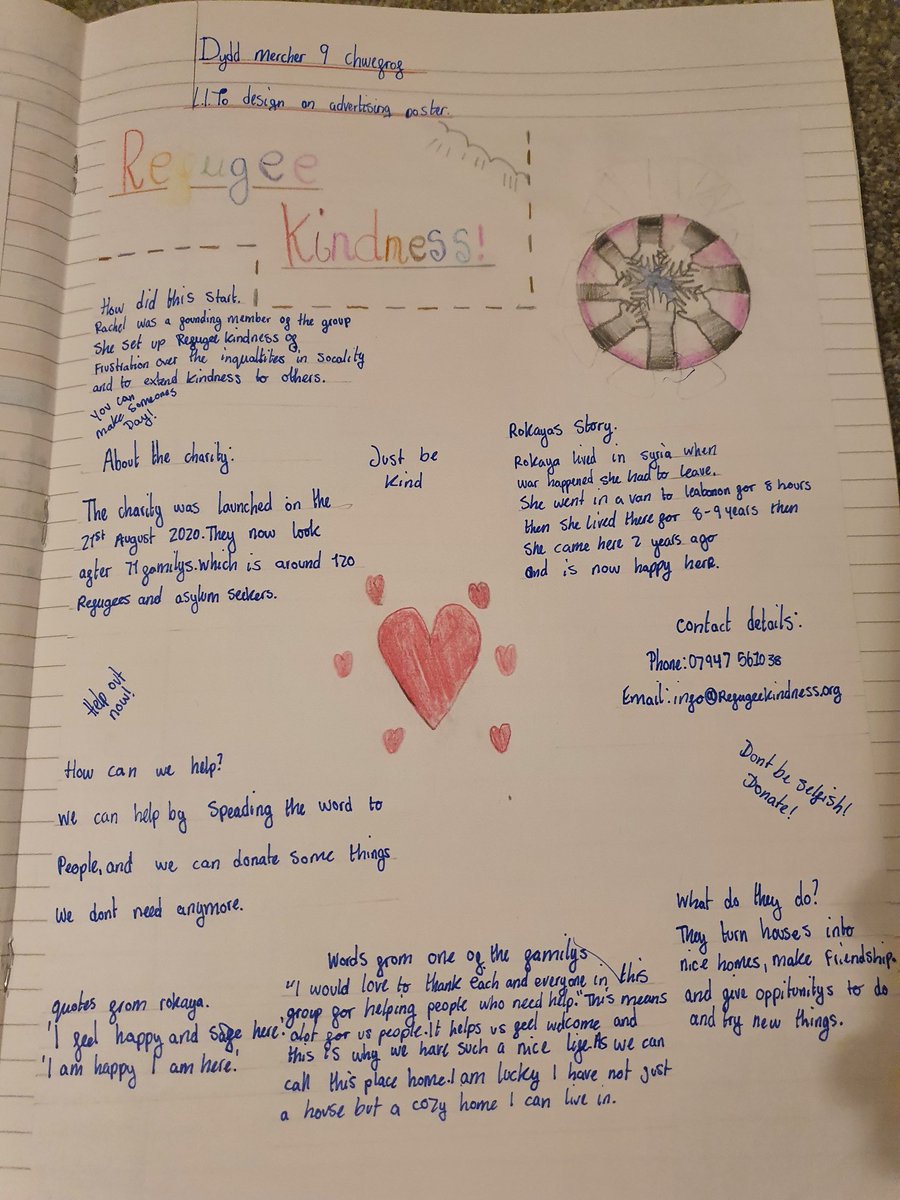 Dydd mercher 9 chwefrof
L.I. To design an advertising poster.
Refugee
Kindness!
How did this start.
Rachel was a founding member of the group
She set up Refugee kindness of
Frustration over the inqualtites in socality
and to extend kindness to others.
You can
make someones
Day!
About the charity:
The charity was launched on the
21st August 2020. They now look
after 71 familys. Which is around 120
Refugees and asylum seekers.
Just be
Kind
Rokayas Story.
Rokaya lived in syria when
war happened she had to leave.
She went in a van to leabonon for 8 hours
then she lived there for 8-9 years then
She came here 2 years ago
and is now happy here.
Contact details:
Phone: 07947 561038
Email: info@Refugeekindness.org
Help out
now!
How can we help?
We can help by Speading the word to
People, and we can donate some things
We dont need anymore.
Dont be selfish!
Donate!
What do they do?
They turn houses into
nice homes, make friendship
and give oppitunitys to do
and try new things.
quotes from rokaya.
'I feel happy and safe here.'
'I am happy I am here.'
Words from one of the familys
"I would love to thank each and everyone in this
group for helping people who need help." This means
alot for us people. It helps us feel welcome and
this is why we have such a nice life. As we can
call this place home. I am lucky I have not just
a house but a cozy home I can live in.